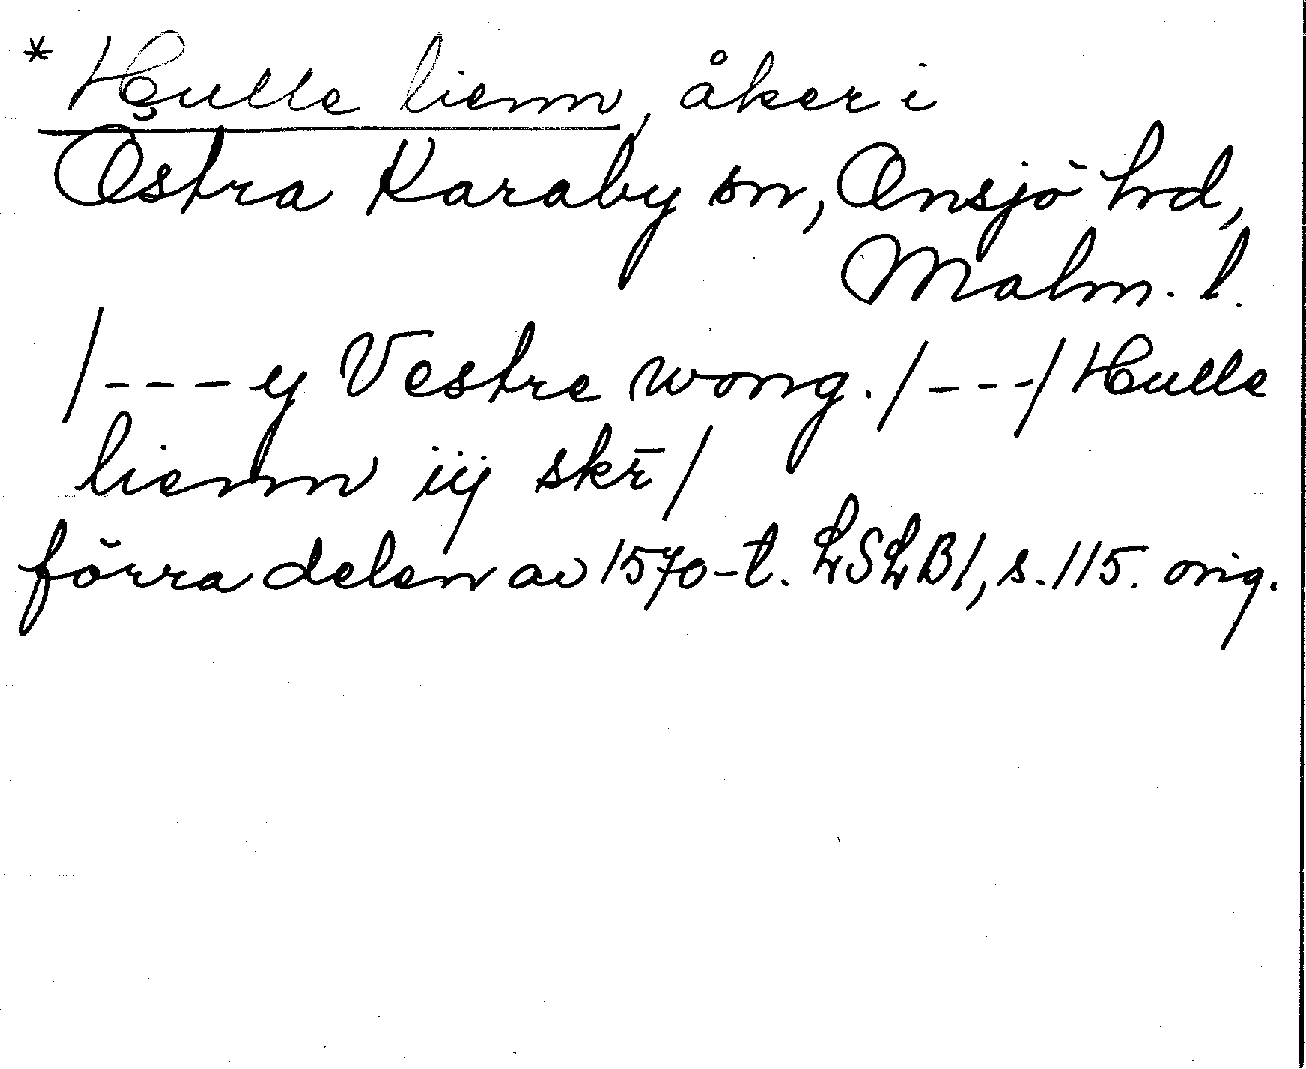 * Hulle lienn, åker i
Östra Karaby sn, Onsjö hrd,
Malm. l.
/---y Vestre wong. /---/ Hulle
lienn iij skr̄ /
förra delen av 1570-t. LSLB1, s. 115. orig.